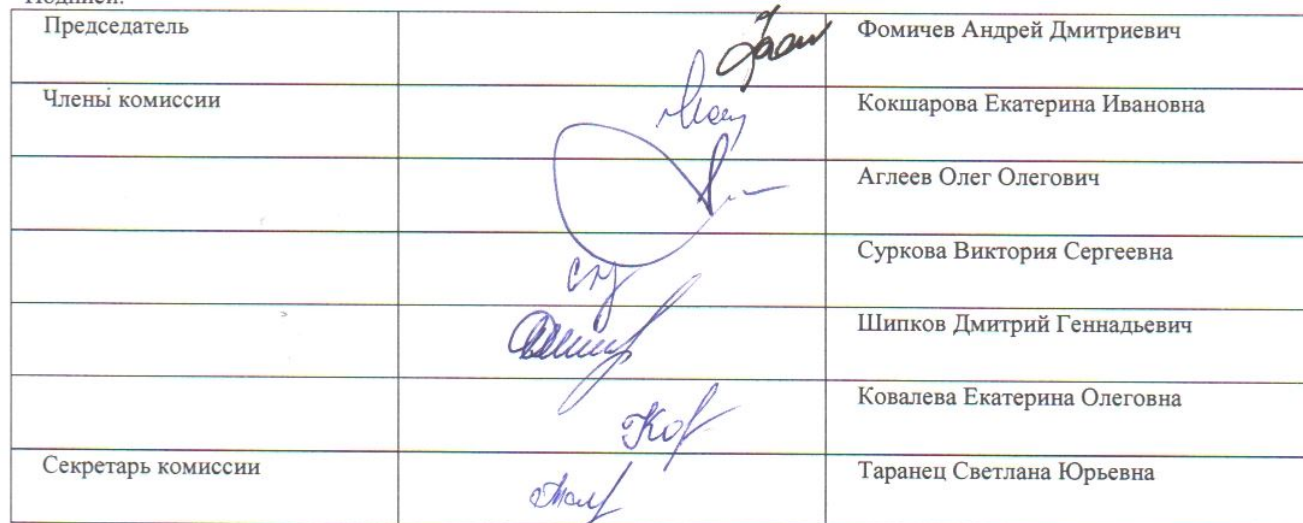 Председатель Фомичев Андрей Дмитриевич
Члены комиссии Кокшарова Екатерина Ивановна
Аглеев Олег Олегович
Суркова Виктория Сергеевна
Шипков Дмитрий Геннадьевич
Ковалева Екатерина Олеговна
Секретарь комиссии Таранец Светлана Юрьевна